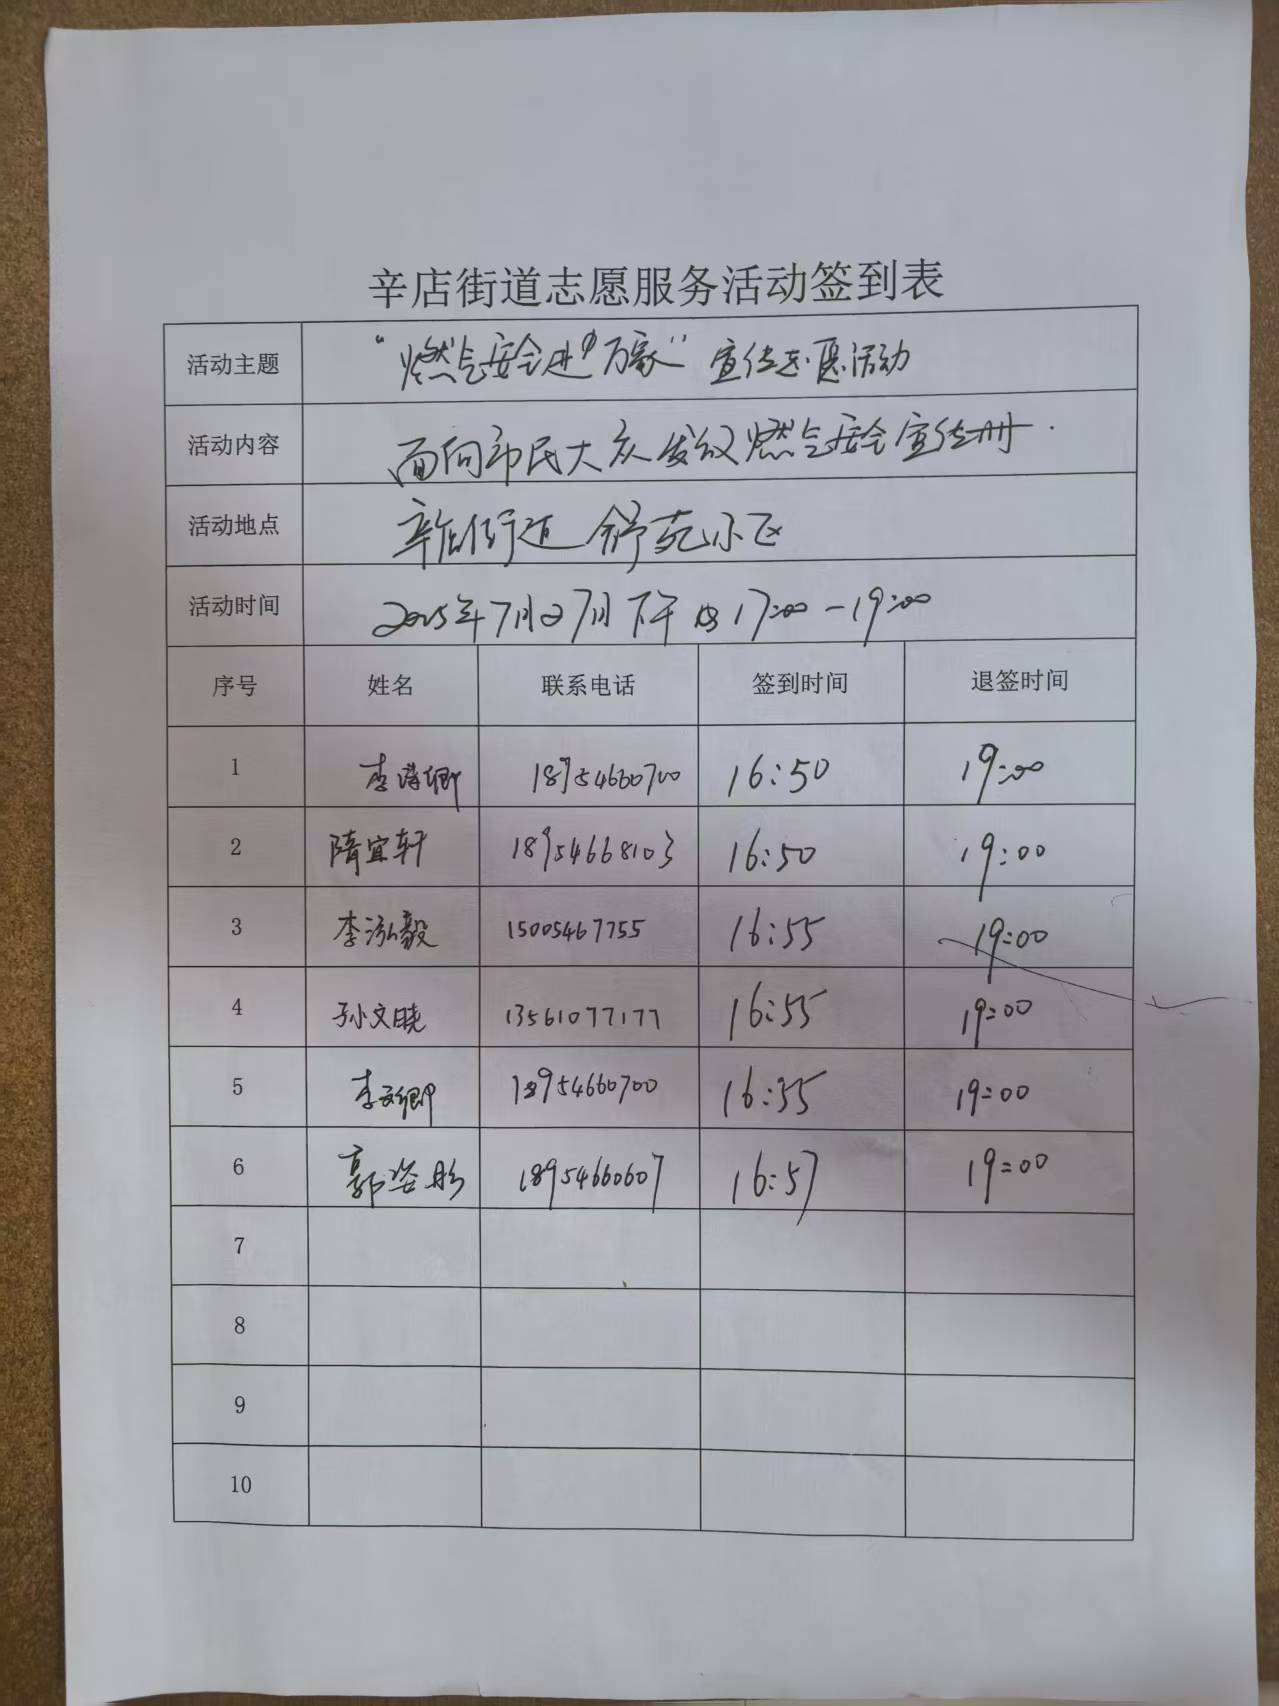 辛店街道志愿服务活动签到表
活动主题 "燃气安全进万家"宣传志愿活动
活动内容 面向市民大众发放燃气安全宣传册.
活动地点 辛店街道 舒苑小区
活动时间 2025年7月27日 下午 17:00-19:00
序号 姓名 联系电话 签到时间 退签时间
1 李 卿 18954660700 16:50 19:00
2 隋宜轩 18954668103 16:50 19:00
3 李泓毅 15005467755 16:55 19:00
4 孙文晓 13561077177 16:55 19:00
5 李文卿 18954660700 16:55 19:00
6 郭姿彤 18954660607 16:57 19:00
7
8
9
10